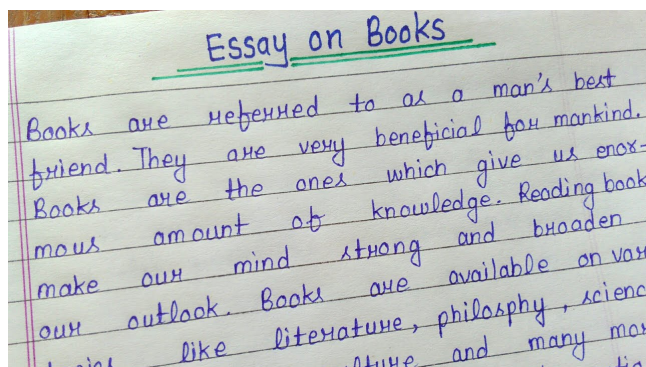 Essay on Books
Books are referred to as a man's best
friend. They are very beneficial for mankind.
Books are the ones which give us enor-
mous amount of knowledge. Reading book
make our mind strong and broaden
our outlook. Books are available on var
like literature, philosphy, scienc
and many mor